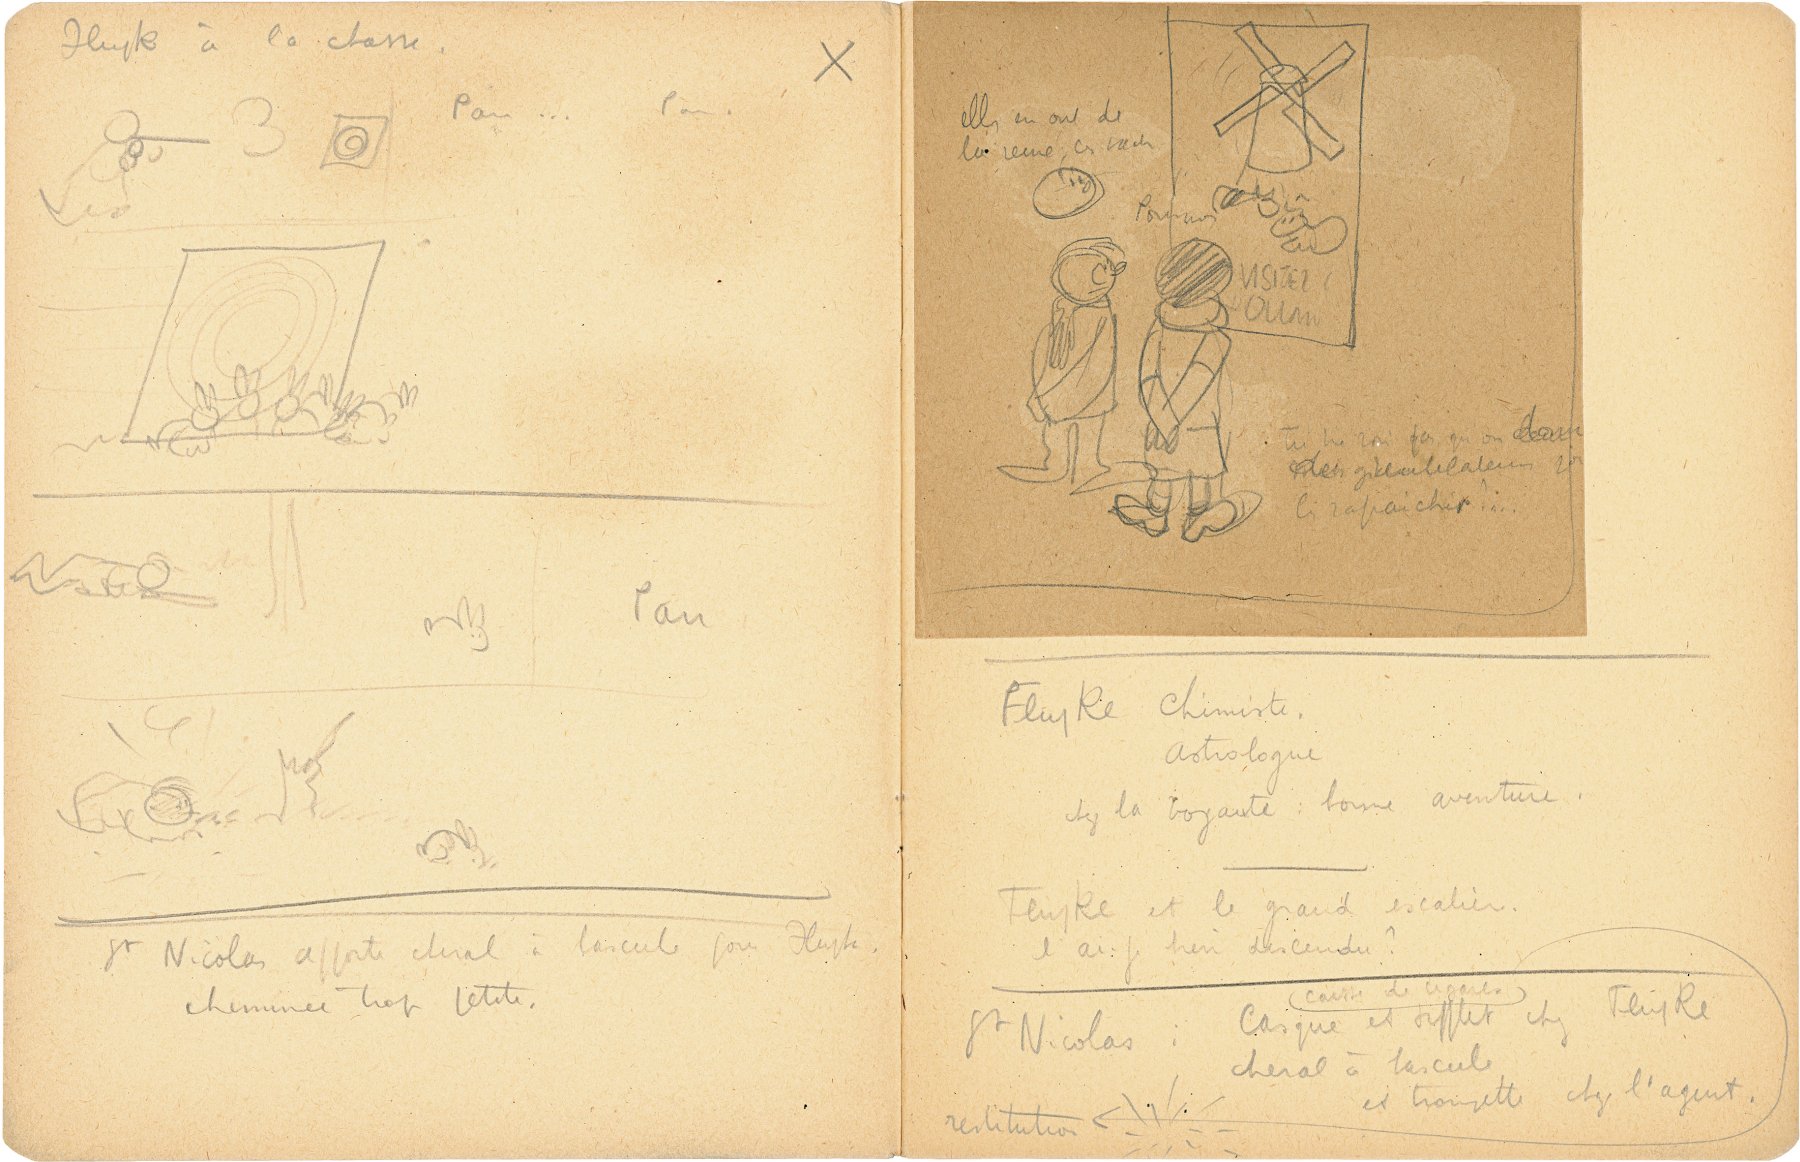 Flupke à la chasse.
Pan ... Pan.
Pan
St Nicolas apporte cheval à bascule pour Flupke.
cheminée trop petite.
elles en ont de
la veine, ces vaches
Pourquoi
VISITEZ
tu ne vois pas qu'on
des gi ventilateurs pour
li rafraichir ?...
Flupke Chimiste.
Astrologue
chez la voyante : bonne aventure.
Flupke et le grand escalier.
l'ai-je bien descendu ?
caisse de cigares
St Nicolas : Casque et sifflet chez Flupke
cheval à bascule
et trompette chez l'agent.
restitution